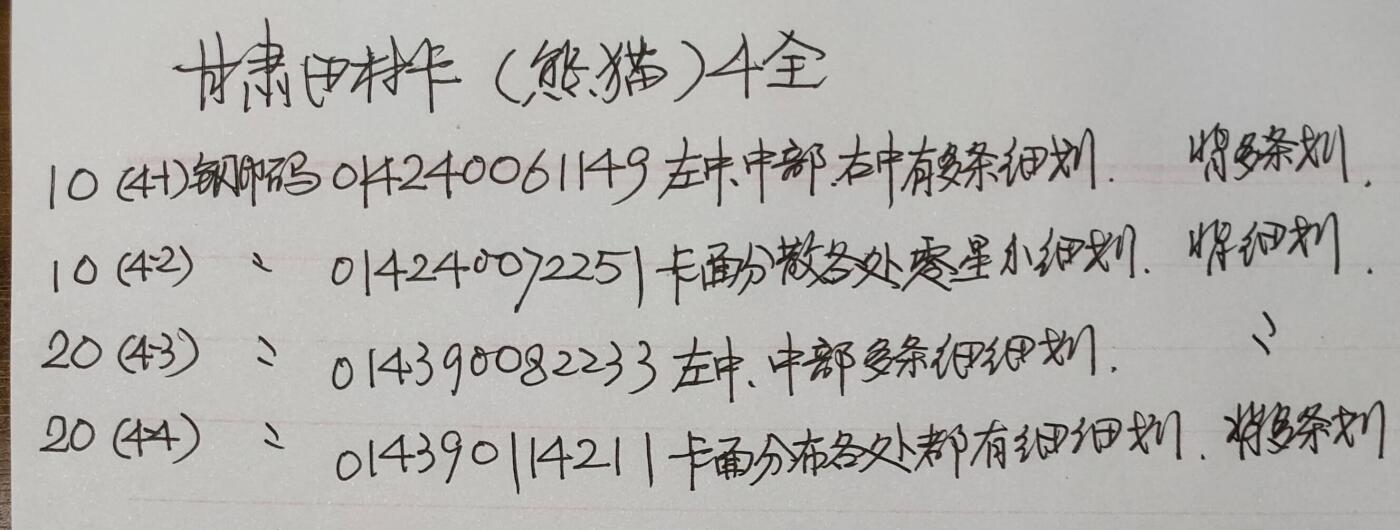 甘肃田村卡（熊猫）4全
10（4-1）钢印码 014240061149 左中、中部、右中有多条细划. 背多条划.
10（4-2） 〃 014240072251 卡面分散各处零星小细划. 背细划.
20（4-3） 〃 014390082233 左中、中部多条细细划. 〃
20（4-4） 〃 014390114211 卡面分布各处都有细细划. 背多条划